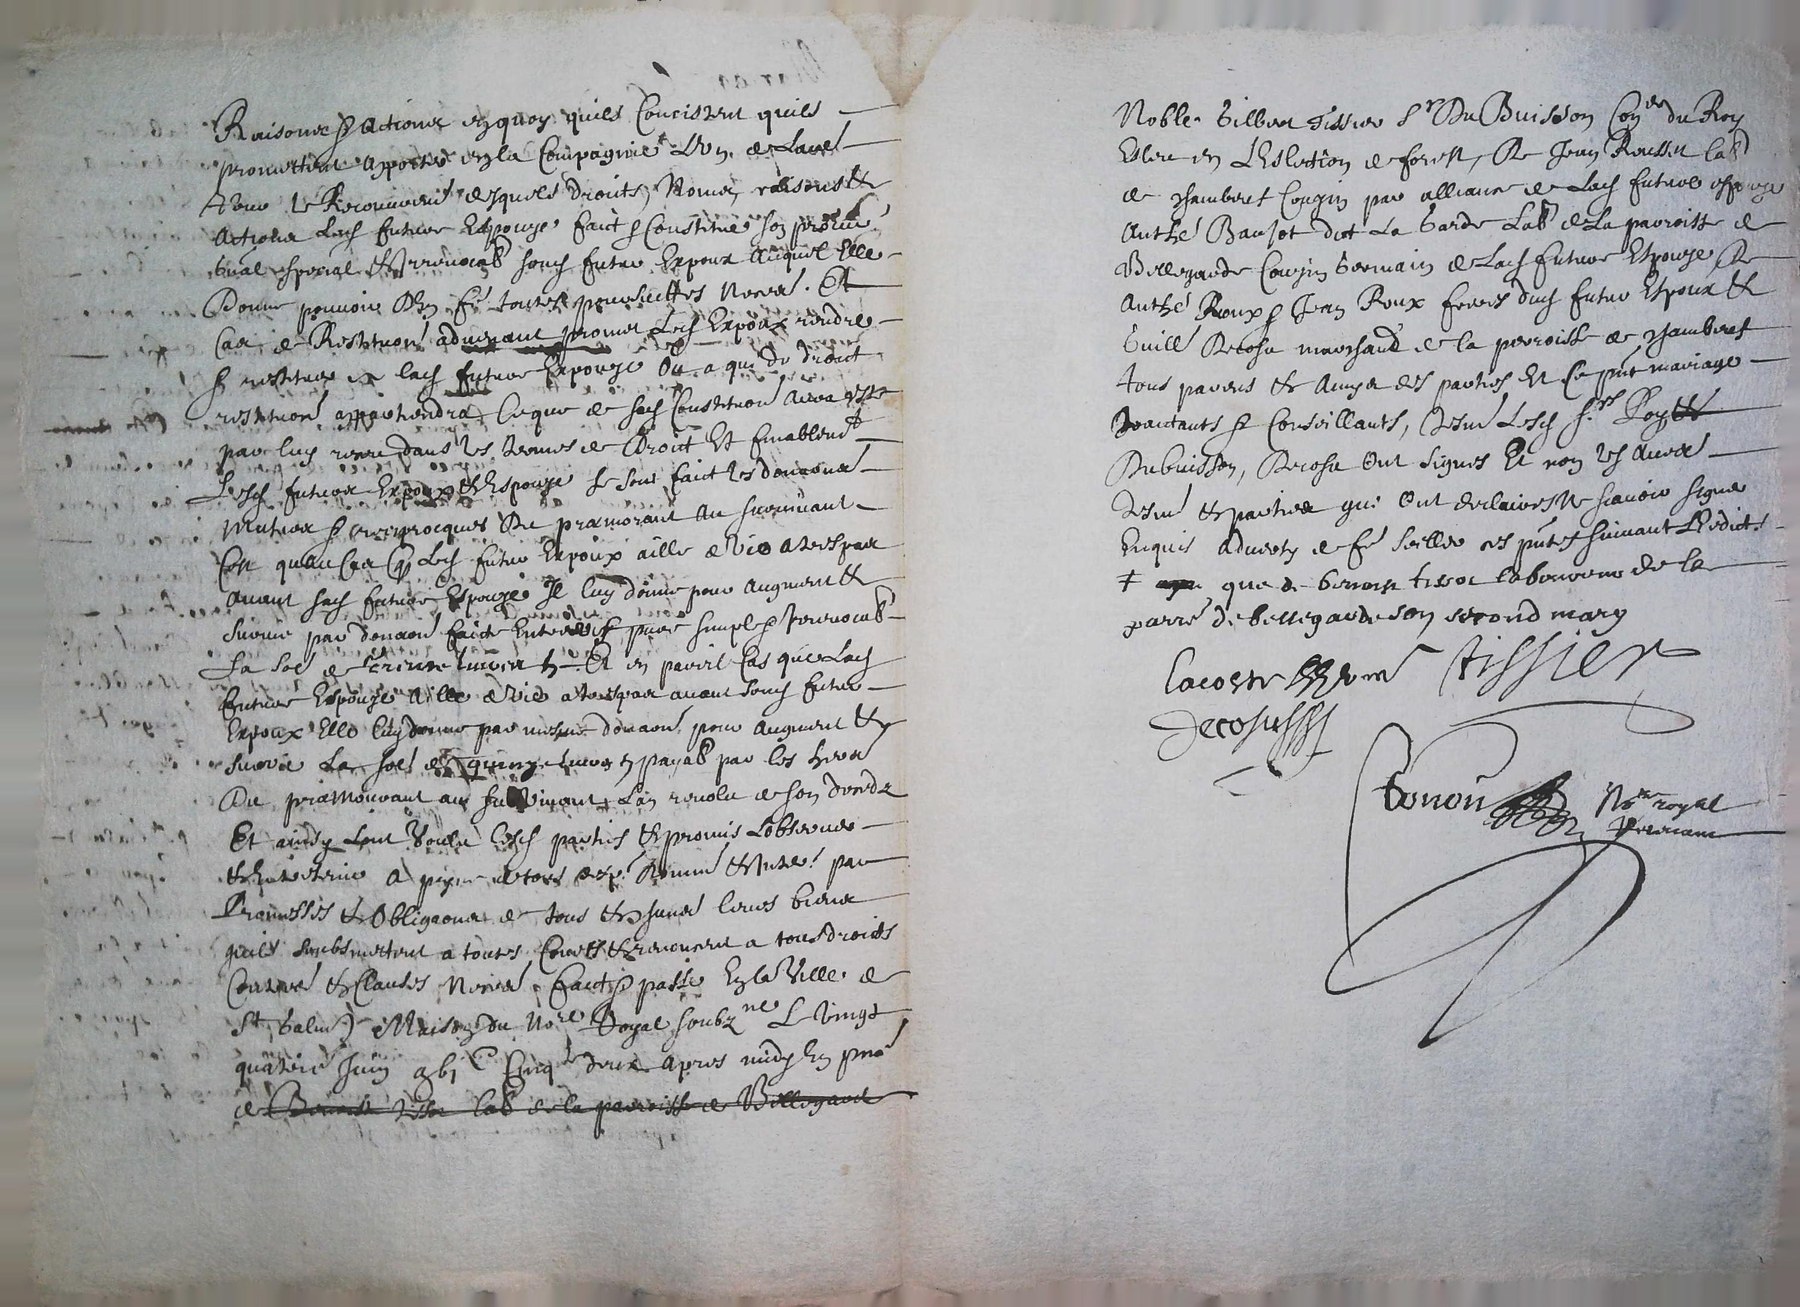 Raisons & actions en quoy quils Concistent quils
promettent apporter en la Compagnie L'un de Laut
pour le Recouvrem desquels droits, Noms, raisons &
actions Lad future Espouze faict & Constitue son procur
gnal special & Irrevocab sond futur Expoux Auquel Elle
Donne pouvoir den fe toutes poursuittes Necess. Et
Cas de Restituon advenant promet Led Expoux rendre
& restituer a lad future Expouze Ou a qui de droict
restituon appartiendra, Ce que de sad Constituon Aura esté
par luy receu dans les termes de Droit Et
Lesd futurs Expoux & Espouze se sont faict les donaons
Mutues & reciprocques Du premorant Au survivant
Cest quau Cas q Led futur Expoux aille de vie a trespas
avant sad future Espouze Il luy donne pour augment &
survie par donaon faicte Entrevifs pure simple & Irrevocab
La so de trente livres Et en pareil Cas que Lad
future Espouze Aille de vie a trespas avant sond futur
Expoux Elle luy donne par mesme donaon pour augment &
survie La so de quinze livres payab par les hers
Du premourant au survivant Lan revolu de son deceds
Et ainsy Lont voulu lesd parties & promis Lobserver
& Entretenir A peyne de tous desp domm & Inter par
Promesses & Obligaons de tous & chuns leurs biens
quils soubsmettent a toutes Cours & renoncent a tous droits
Contres & Clauses Necess. Faict & passé En la Ville de
St Galmier Maison du Nore Royal soubzne Le vingt
quatrie Juin gbi c Cinq deux apres midy En pnce
de Benoist Tissot lab de la parroisse de Bellegarde
Noble Gilbert Tissier Sr Du Buisson Coner du Roy
Esleu en L'Eslection de forest, De Jean Rousset lab
de chambost Cougin par alliance de Lad future espouze
Anthe Baujot dict La Garde Lab de La parroisse de
Bellegarde Cougin Germain de Lad future Espouze De
Anthe Roux & Jean Roux freres dud futur Espoux &
Guill Decoste marchand de la parroisse de chambost
tous parens & amys des parties Et Ce pnt mariage
traictants & Conseillants, Tesm Lesd Srs
Dubuisson, Decoste Ont Signes Et non les autres
Tesm & parties qui Ont declaires Ne scavoir signer
Enquis advertys de fe seeller ces pntes suivant L'Edict
+ que de benoist tissot laboureur de la
parre de bellegarde son second mary
Lacoste tissier
Decoste
tonon Nore royal